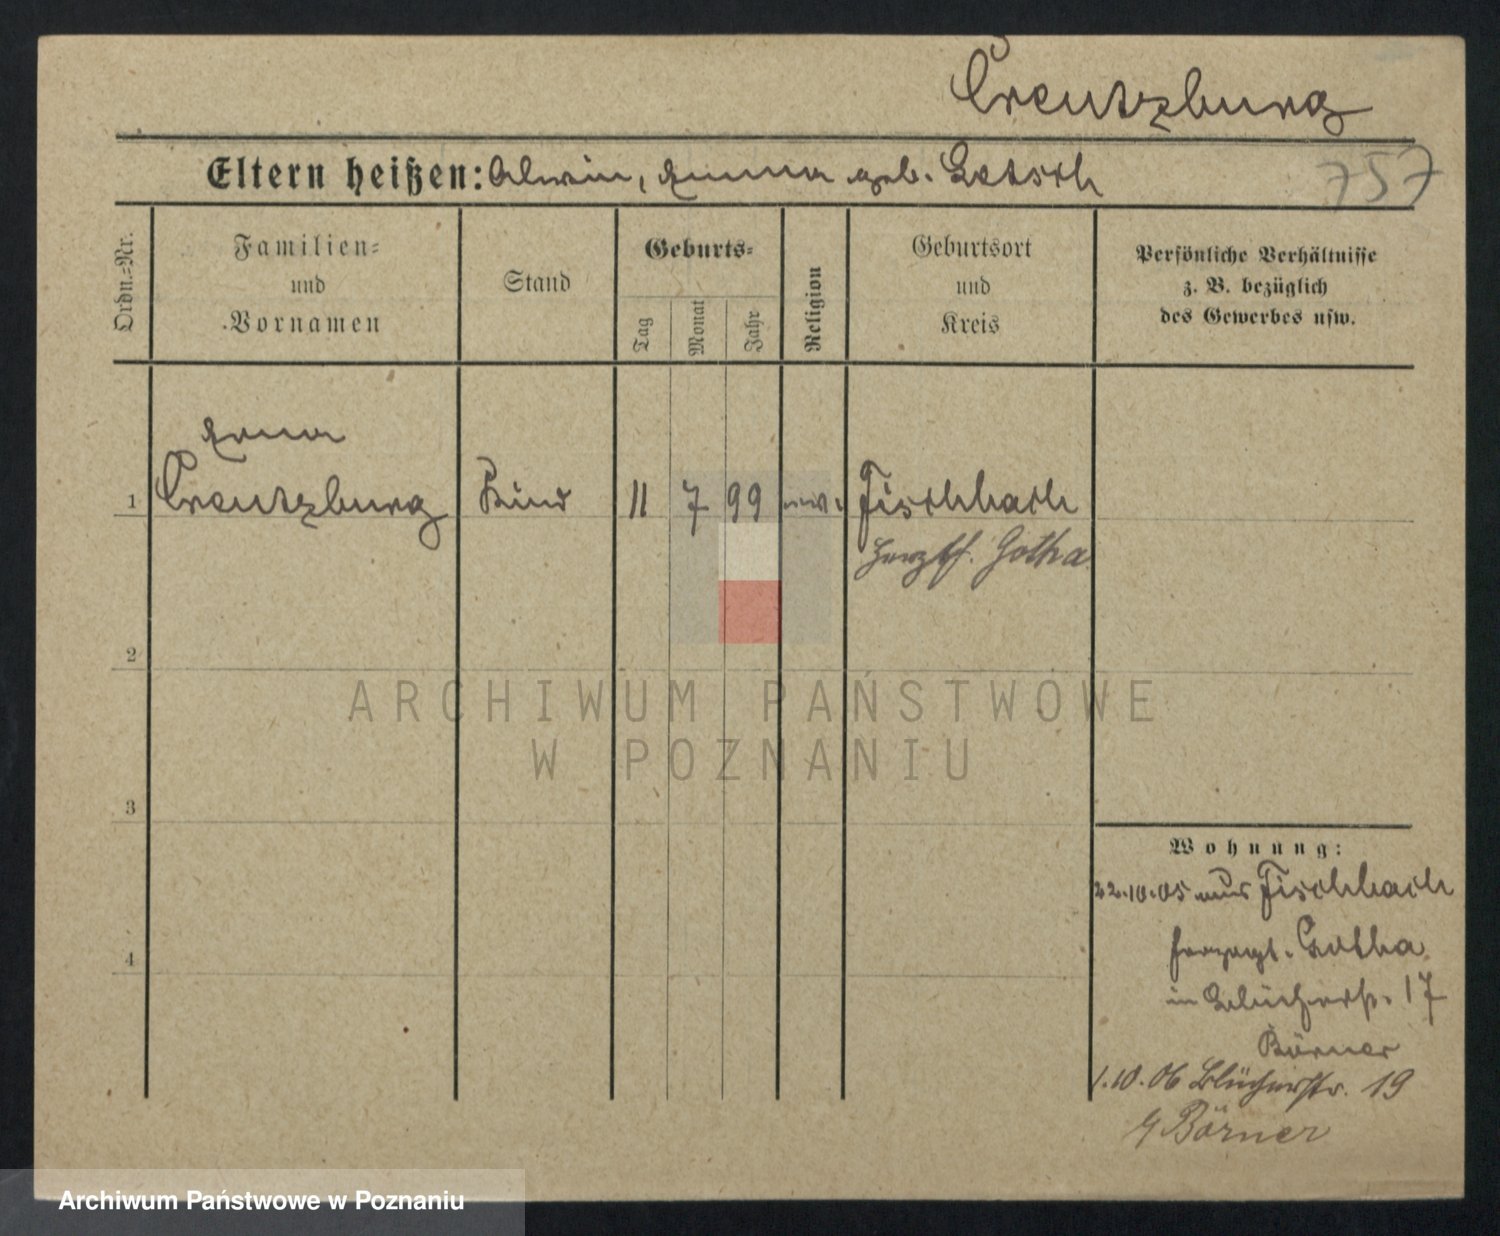 Creutzburg
Eltern heißen: Alwin, Emma geb.
757
Ordn.-Nr.
Familien-
und
Vornamen
Stand
Geburts-
Tag
Monat
Jahr
Religion
Geburtsort
und
Kreis
Persönliche Verhältnisse
z. B. bezüglich
des Gewerbes usw.
Erna
1 Creutzburg Kind 11 7 99 ev. Fischbach
Herzgt. Gotha
2
ARCHIWUM PAŃSTWOWE
W POZNANIU
3
4
Wohnung:
22.10.05 aus Fischbach
Herzogt. Gotha
in Blücherstr. 17
Börner
1.10.06 Blücherstr. 19
Börner
Archiwum Państwowe w Poznaniu